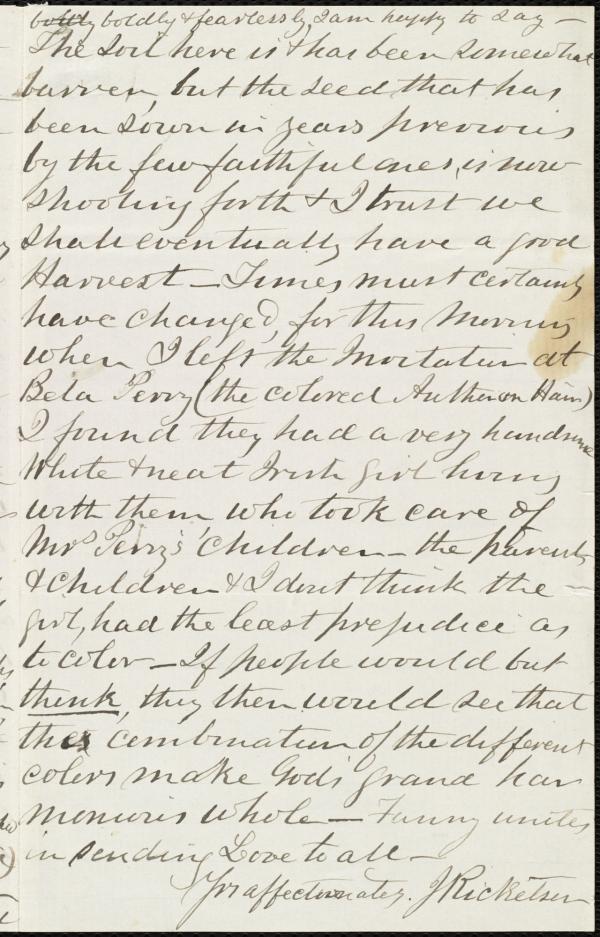 boldly boldly & fearlessly, I am happy to say —
The soil here is & has been somewhat
barren, but the seed that has
been sown in years previous
by the few faithful ones, is now
shooting forth & I trust we
shall eventually have a good
Harvest — Times must certainly
have changed, for this Morning
when I left the Invitation at
Bela Perry (the colored Author on Hair)
I found they had a very handsome
White & neat Irish girl living
with them who took care of
Mrs Perry's children — the parents
& children & I dont think the
girl, had the least prejudice as
to color — If people would but
think, they then would see that
the combination of the different
colors make God's grand har
monious whole — Fanny unites
in sending Love to all —
Yrs affectionately. J Ricketson